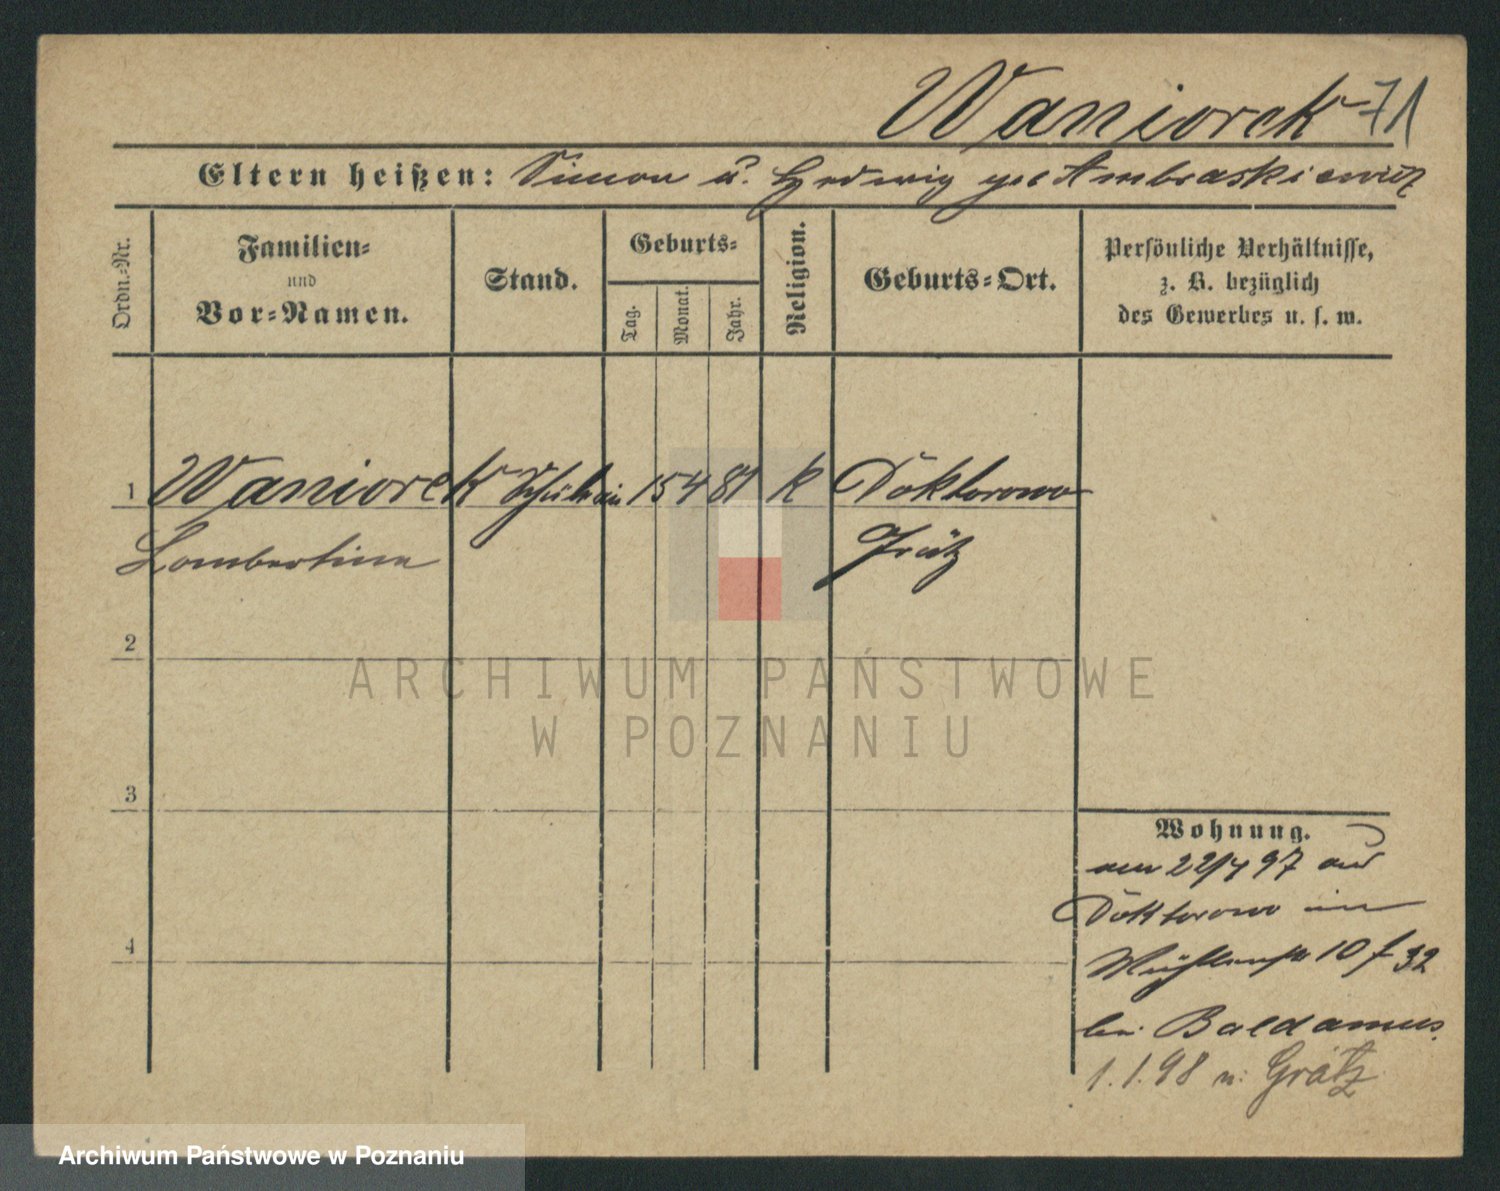 Waniorek 71
Eltern heißen: Simon u. Hedwig geb Ambraskiewitz
Ordn.-Nr.
Familien-
und
Vor-Namen.
Stand.
Geburts-
Tag.
Monat.
Jahr.
Religion.
Geburts-Ort.
Persönliche Verhältnisse,
z. B. bezüglich
des Gewerbes u. s. w.
1 Waniorek 15 4 81 k Doktorowo
Lambertina Grätz
2
ARCHIWUM PAŃSTWOWE
W POZNANIU
3
Wohnung.
am 22/4 97 aus
Doktorowo in
Mühlenstr 10 f 32
bei Baldamus.
4
1.1.98 n. Grätz
Archiwum Państwowe w Poznaniu